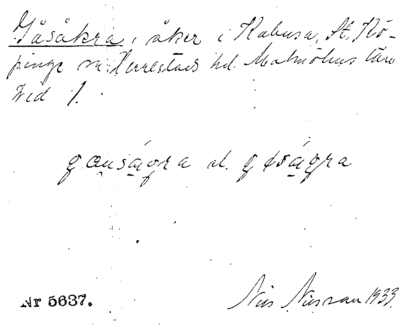 Gåsåkra, åker i Kabusa, St. Kö-
pinge sn Herrestads hd. Malmöhus län
Bed 1.
gausågra el. gåságra
Nr 5637.
Nils Nilsson 1933.